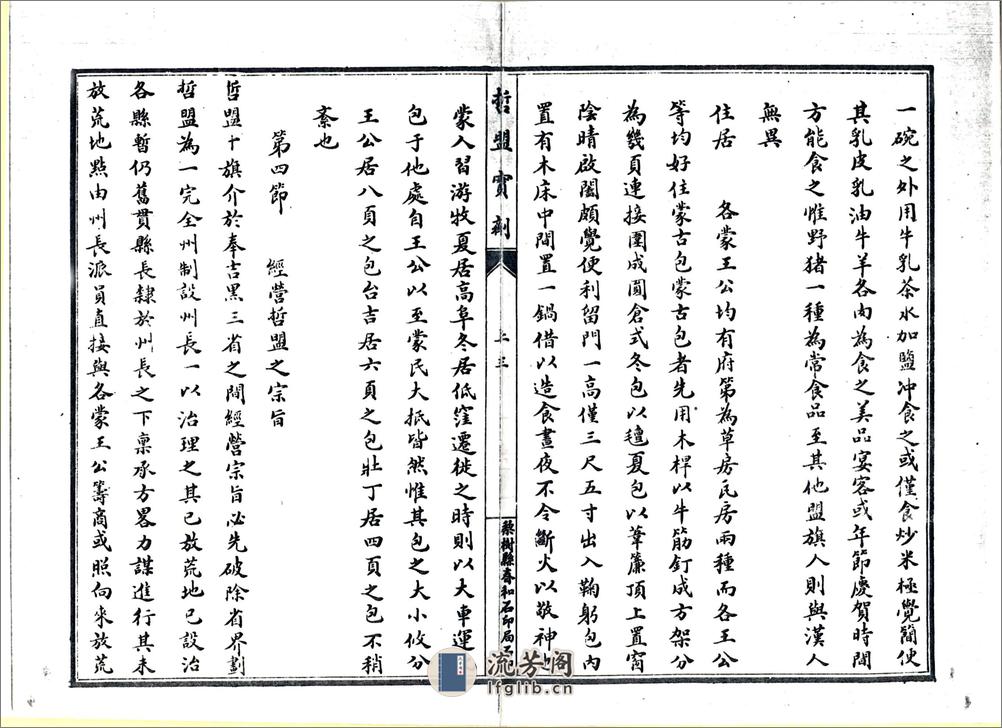 一碗之外用牛乳茶水加鹽冲食之或僅食炒米極覺簡便
其乳皮乳油牛羊各肉為食之美品宴客或年節慶賀時間
方能食之惟野猪一種為常食品至其他盟旗人則與漢人
無異
住居　各蒙王公均有府第為草房瓦房兩種而各王公
等均好住蒙古包蒙古包者先用木桿以牛筋釘成方架分
為幾頁連接圍成圓倉式冬包以氊夏包以葦簾頂上置窗
陰晴啟闔頗覺便利留門一高僅三尺五寸出入鞠躬包內
置有木床中間置一鍋借以造食晝夜不令斷火以敬神也
哲盟實劑
上三
蔡樹縣春和石印局石
蒙人習游牧夏居高阜冬居低窪遷徙之時則以大車運
包于他處自王公以至蒙民大抵皆然惟其包之大小攸分
王公居八頁之包台吉居六頁之包壯丁居四頁之包不稍
紊也
第四節　經營哲盟之宗旨
哲盟十旗介於奉吉黑三省之間經營宗旨必先破除省界劃
哲盟為一完全州制設州長一以治理之其已放荒地已設治
各縣暫仍舊貫縣長隸於州長之下稟承方畧力謀進行其未
放荒地點由州長派員直接與各蒙王公籌商或照向來放荒
流芳阁
lfglib.cn